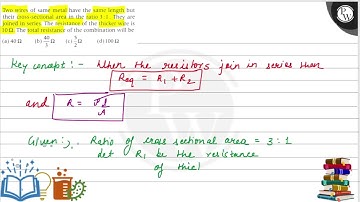 Two wires of same metal have the same length but
their cross-sectional area in the ratio 3 : 1. They are
joined in series. The resistance of the thicker wire is
10 Ω. The total resistance of the combination will be
(a) 40 Ω (b) 40/3 Ω (c) 5/2 Ω (d) 100 Ω
Key concept :- When the resistors join in series then
Req = R1 + R2
and R = ρl/A
Given :- Ratio of cross sectional area = 3 : 1
let R1 be the resistance
of thicl